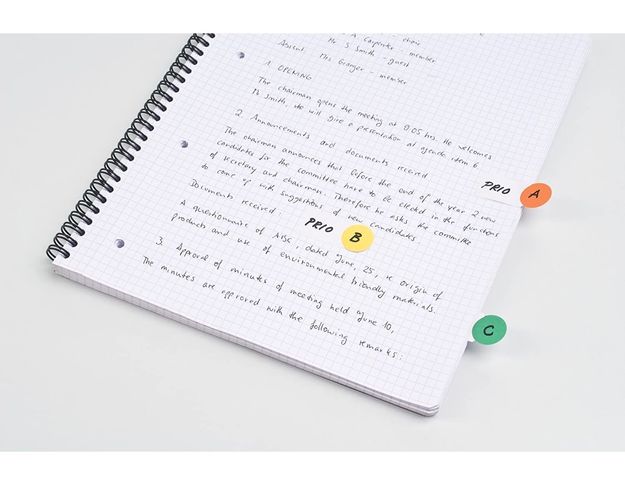 A. Carpenter - chair
Mr. S Smith - guest
Absent: Mrs Granger - member
1. OPENING
The chairman opens the meeting at 0.05 hrs. He welcomes
Smith, He will give a presentation at agenda item 6
2. Announcements and documents received
The chairman announces that before the end of the year 2 new
candidates for the committee have to be elected in the functions
of secretary and chairman. Therefore he asks the committee
to come up with suggestions of new candidates
Documents received:
A questionnaire of AISC, dated June, 25, re origin of
products and use of environmental friendly materials.
3. Approval of minutes of meeting held June 10,
The minutes are approved with the following remarks:
PRIO A
PRIO B
C